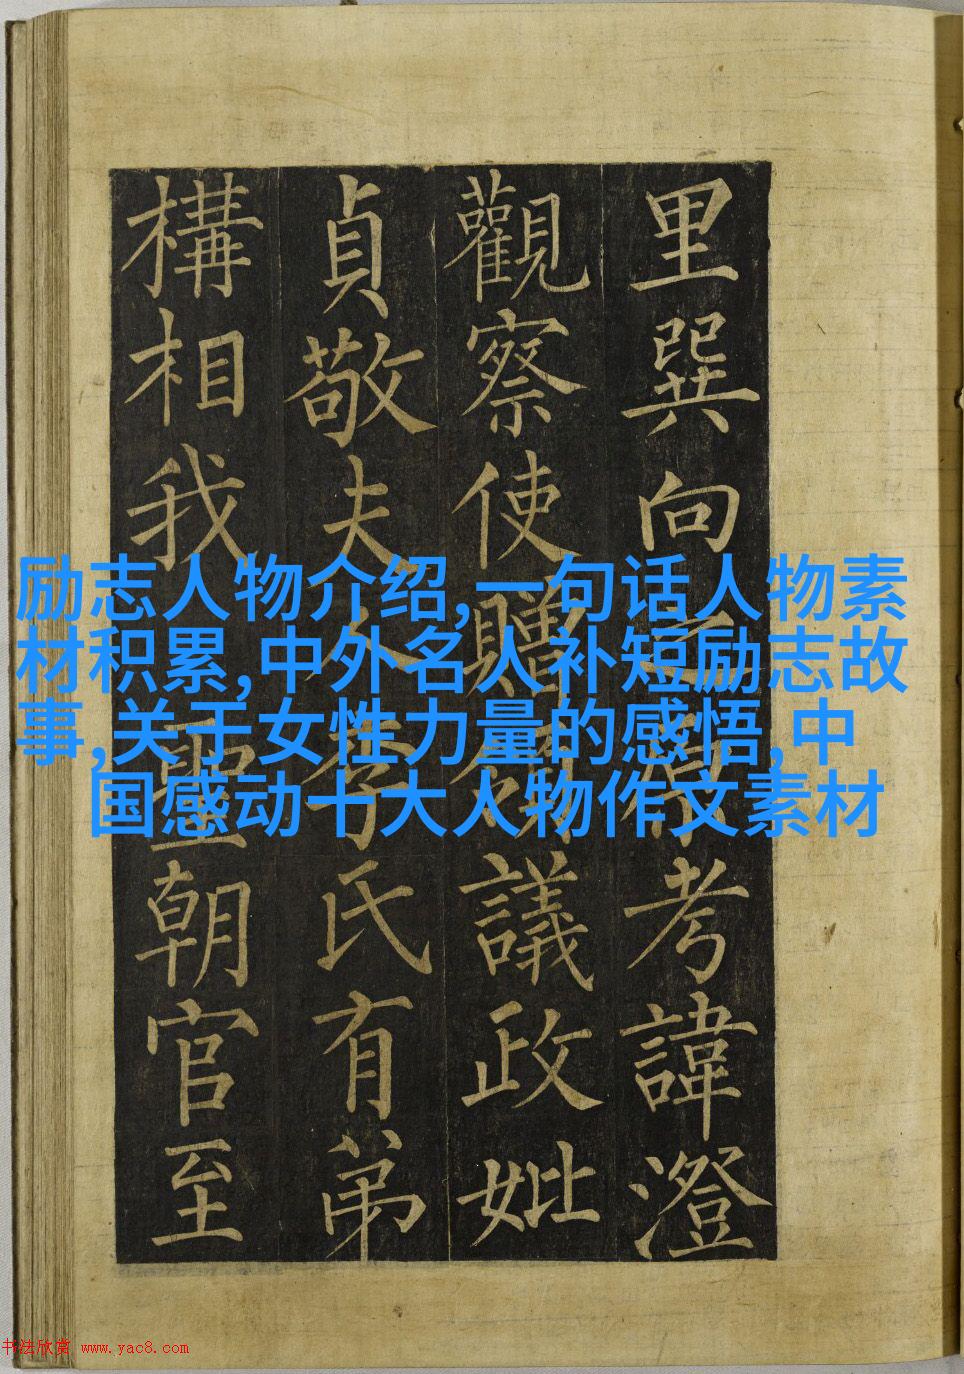 里巽向之原考諱澄
觀察使贈領議政妣
貞敬夫人李氏有弟
構相我聖朝官至
励志人物介绍,一句话人物素
材积累,中外名人补短励志故
事,关于女性力量的感悟,中
国感动十大人物作文素材
书法欣赏 www.yac8.com